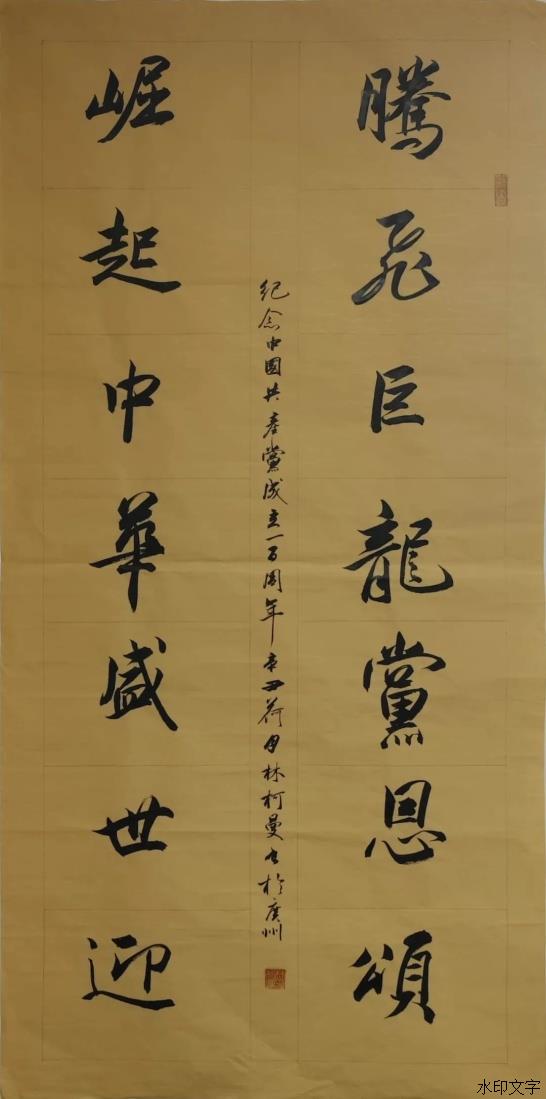 騰飛巨龍黨恩頌
紀念中國共產黨成立一百周年辛丑荷月林柯曼书於廣州
崛起中華盛世迎
水印文字